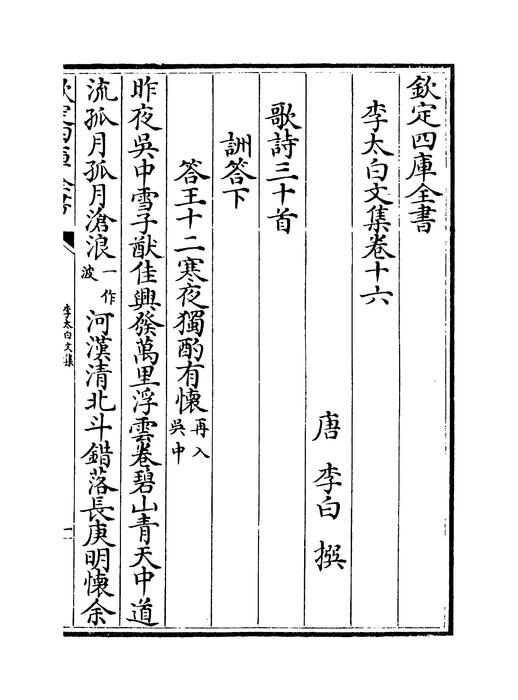 欽定四庫全書
李太白文集卷十六
唐 李白 撰
歌詩三十首
詶答下
答王十二寒夜獨酌有懷再入吳中
昨夜吳中雪子猷佳興發萬里浮雲卷碧山青天中道
流孤月孤月滄浪一作波河漢清北斗錯落長庚明懷余
欽定四庫全書
李太白文集
一